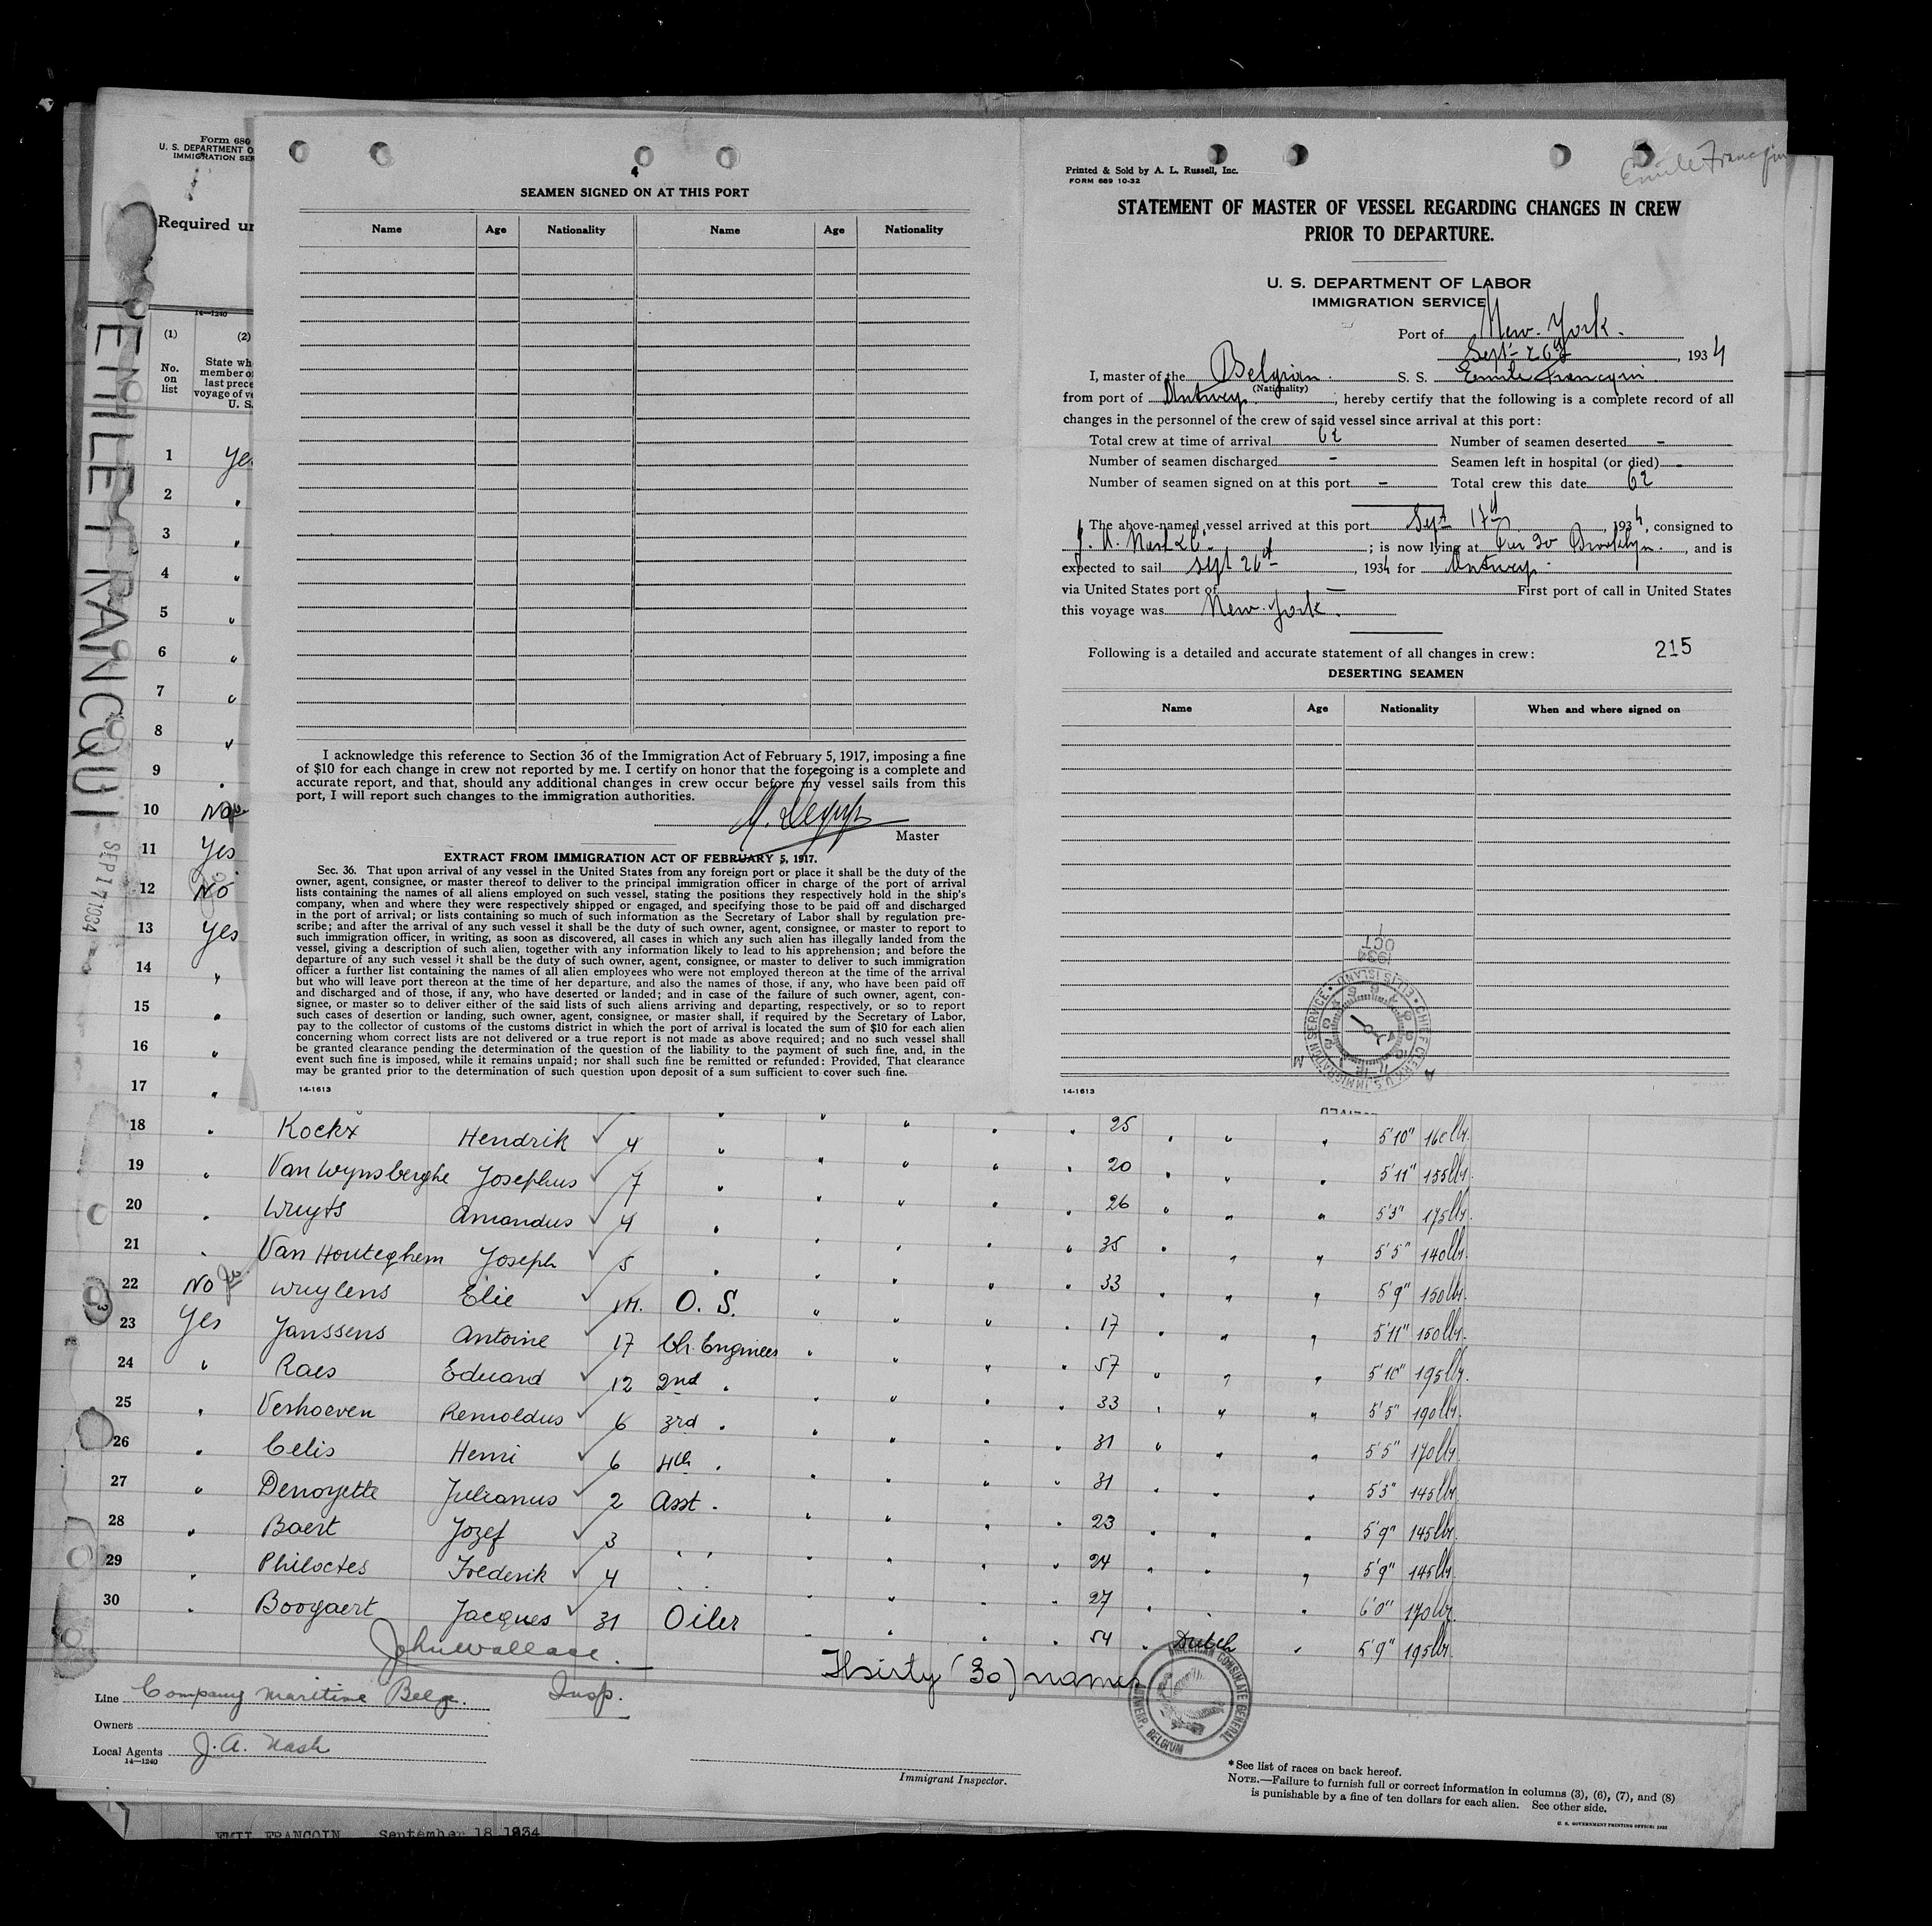 Form 680
U. S. DEPARTMENT O
IMMIGRATION SER
Required un
14-1240
(1)
(2)
No.
on
list
State wh
member o
last prece
voyage of ve
U. S.
EMILE FRANCQUI
SEP 17 1934
1 Ye
2 "
3 "
4 "
5 "
6 "
7 "
8 "
9 "
10 No
11 Yes
12 No
13 Yes
14 "
15 "
16 "
17 "
4
SEAMEN SIGNED ON AT THIS PORT
Name Age Nationality Name Age Nationality
I acknowledge this reference to Section 36 of the Immigration Act of February 5, 1917, imposing a fine
of $10 for each change in crew not reported by me. I certify on honor that the foregoing is a complete and
accurate report, and that, should any additional changes in crew occur before my vessel sails from this
port, I will report such changes to the immigration authorities.
Master
EXTRACT FROM IMMIGRATION ACT OF FEBRUARY 5, 1917.
Sec. 36. That upon arrival of any vessel in the United States from any foreign port or place it shall be the duty of the
owner, agent, consignee, or master thereof to deliver to the principal immigration officer in charge of the port of arrival
lists containing the names of all aliens employed on such vessel, stating the positions they respectively hold in the ship's
company, when and where they were respectively shipped or engaged, and specifying those to be paid off and discharged
in the port of arrival; or lists containing so much of such information as the Secretary of Labor shall by regulation pre-
scribe; and after the arrival of any such vessel it shall be the duty of such owner, agent, consignee, or master to report to
such immigration officer, in writing, as soon as discovered, all cases in which any such alien has illegally landed from the
vessel, giving a description of such alien, together with any information likely to lead to his apprehension; and before the
departure of any such vessel it shall be the duty of such owner, agent, consignee, or master to deliver to such immigration
officer a further list containing the names of all alien employees who were not employed thereon at the time of the arrival
but who will leave port thereon at the time of her departure, and also the names of those, if any, who have been paid off
and discharged and of those, if any, who have deserted or landed; and in case of the failure of such owner, agent, con-
signee, or master so to deliver either of the said lists of such aliens arriving and departing, respectively, or so to report
such cases of desertion or landing, such owner, agent, consignee, or master shall, if required by the Secretary of Labor,
pay to the collector of customs of the customs district in which the port of arrival is located the sum of $10 for each alien
concerning whom correct lists are not delivered or a true report is not made as above required; and no such vessel shall
be granted clearance pending the determination of the question of the liability to the payment of such fine, and, in the
event such fine is imposed, while it remains unpaid; nor shall such fine be remitted or refunded: Provided, That clearance
may be granted prior to the determination of such question upon deposit of a sum sufficient to cover such fine.
14-1613
Emile Francqui
Printed & Sold by A. L. Russell, Inc.
FORM 689 10-32
STATEMENT OF MASTER OF VESSEL REGARDING CHANGES IN CREW
PRIOR TO DEPARTURE.
U. S. DEPARTMENT OF LABOR
IMMIGRATION SERVICE
Port of New-York.
Sept- 26th, 1934
I, master of the Belgian S. S. Emile Francqui
(Nationality)
from port of Antwerp; hereby certify that the following is a complete record of all
changes in the personnel of the crew of said vessel since arrival at this port:
Total crew at time of arrival 62 Number of seamen deserted -
Number of seamen discharged - Seamen left in hospital (or died) -
Number of seamen signed on at this port - Total crew this date 62
The above-named vessel arrived at this port Sept 17th, 1934, consigned to
J. A. Nash & Co; is now lying at Pier 30 Brooklyn, and is
expected to sail Sept 26th, 1934 for Antwerp
via United States port of - First port of call in United States
this voyage was New-York.
Following is a detailed and accurate statement of all changes in crew: 215
DESERTING SEAMEN
Name Age Nationality When and where signed on
1934
OCT 1
CHIEF CLERK U.S. IMMIGRATION SERVICE • ELLIS ISLAND
A M
14-1613
18 " Kockx Hendrik ✓ 4 " " " " " 25 " " " 5'10" 160 lbs.
19 " Van Wynsberghe Josephus ✓ 7 " " " " " 20 " " " 5'11" 155 lbs.
20 " Wuyts Amandus ✓ 4 " " " " " 26 " " " 5'3" 175 lbs.
21 " Van Houteghem Joseph ✓ 5 " " " " " 35 " " " 5'5" 140 lbs.
22 No Wuylens Elie ✓ O. S. " " " " 33 " " " 5'9" 150 lbs.
23 Yes Janssens Antoine ✓ 17 Ch. Engineer " " " " 17 " " " 5'11" 150 lbs.
24 " Raes Eduard ✓ 12 2nd " " " " " 57 " " " 5'10" 195 lbs.
25 " Verhoeven Remoldus ✓ 6 3rd " " " " " 33 " " " 5'5" 190 lbs.
26 " Celis Henri ✓ 6 4th " " " " " 31 " " " 5'5" 170 lbs.
27 " Denoyette Julianus ✓ 2 Asst. " " " " 31 " " " 5'3" 145 lbs.
28 " Baert Jozef ✓ 3 " " " " " " 23 " " " 5'9" 145 lbs.
29 " Philoctes Frederik ✓ 4 " " " " " " 24 " " " 5'9" 145 lbs.
30 " Boogaert Jacques ✓ 31 Oiler " " " " 27 " " " 6'0" 170 lbs.
54 " Dutch " 5'9" 195 lbs.
John Wallace.
Insp.
Thirty (30) names
AMERICAN CONSULATE GENERAL
ANTWERP, BELGIUM
Line Company Maritime Belge.
Owners
Local Agents J. A. Nash
14-1240
Immigrant Inspector.
*See list of races on back hereof.
NOTE.—Failure to furnish full or correct information in columns (3), (6), (7), and (8)
is punishable by a fine of ten dollars for each alien. See other side.
U. S. GOVERNMENT PRINTING OFFICE: 1932
EMIL FRANCQIN September 18 1934